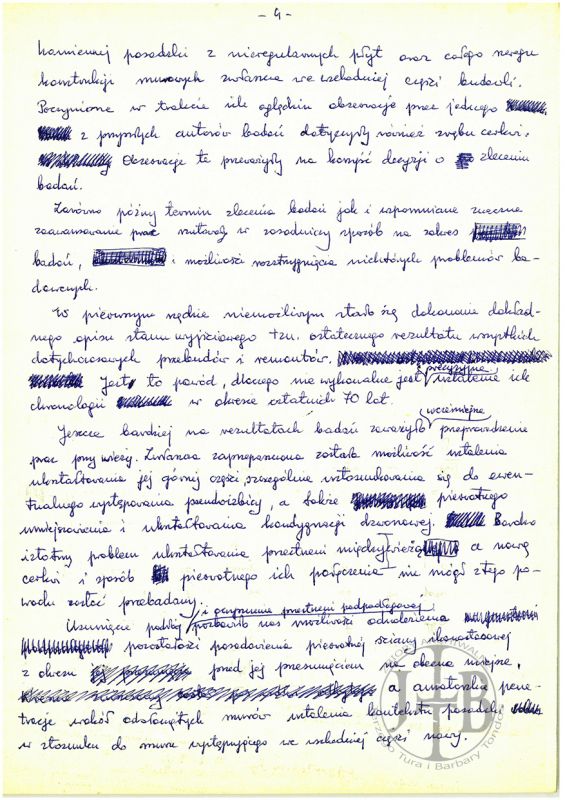 - 4 -
kamiennej posadzki z nieregularnych płyt oraz całego szeregu
konstrukcji murowych zwłaszcza we wschodniej części budowli.
Poczynione w trakcie ich oględzin obserwacje przez jednego
z przyszłych autorów badań dotyczyły również zrębu cerkwi.
Obserwacje te przeważyły na korzyść decyzji o zleceniu
badań.
Zarówno późny termin zlecenia badań jak i wspomniane znaczne
zaawansowanie prac rzutował w zasadniczy sposób na zakres
badań, i możliwości rozstrzygnięcia niektórych problemów ba-
dawczych.
W pierwszym rzędzie niemożliwym stało się dokonanie dokład-
nego opisu stanu wyjściowego tzn. ostatecznego rezultatu wszystkich
dotychczasowych przebudów i remontów.
Jest to powód, dlaczego nie wykonalne jest precyzyjne ustalenie ich
chronologii w okresie ostatnich 70 lat.
Jeszcze bardziej na rezultatach badań zaważyło wcześniejsze przeprowadzenie
prac przy wieży. Zwłaszcza zaprzepaszczona została możliwość ustalenia
ukształtowania jej górnej części, szczególnie ustosunkowania się do ewen-
tualnego występowania pseudoizbicy, a także pierwotnego
umiejscowienia i ukształtowania kondygnacji dzwonowej. Bardzo
istotny problem ukształtowania przestrzeni między wieżą a nawą
cerkwi i sposób pierwotnego ich połączenia nie mógł z tego po-
wodu zostać przebadany.
Usunięcie podłóg i oczyszczenie przestrzeni podpodłogowej pozbawiło nas możliwości odnalezienia
pozostałości posadowienia pierwotnej ściany ikonostasowej
z okresu przed jej przesunięciem na obecne miejsce,
a amatorska pene-
tracje wokół odsłoniętych murów ustalenia kontekstu posadzki
w stosunku do muru występującego we wschodniej części nawy.